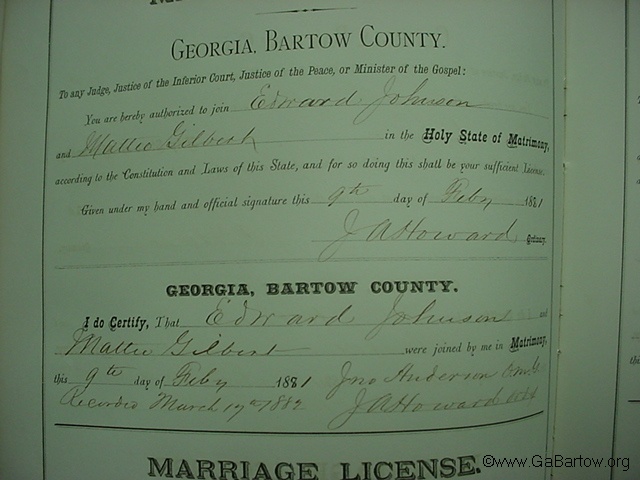 GEORGIA, BARTOW COUNTY.
To any Judge, Justice of the Inferior Court, Justice of the Peace, or Minister of the Gospel:
You are hereby authorized to join Edward Johnson
and Mattie Gilbert in the Holy State of Matrimony,
according to the Constitution and Laws of this State, and for so doing this shall be your sufficient License.
Given under my hand and official signature this 9th day of Feby 1881
J A Howard Ordinary.
GEORGIA, BARTOW COUNTY.
I do Certify, That Edward Johnson and
Mattie Gilbert were joined by me in Matrimony,
this 9th day of Feby 1881 Jno Anderson
Recorded March 17th 1882 J A Howard
MARRIAGE LICENSE.
©www.GaBartow.org